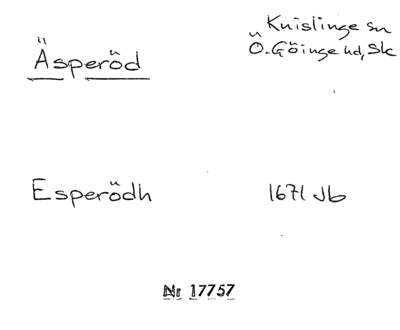 Äsperöd
Knislinge sn
Ö. Göinge hd, Sk
Esperödh
1671 Jb
Nr 17757